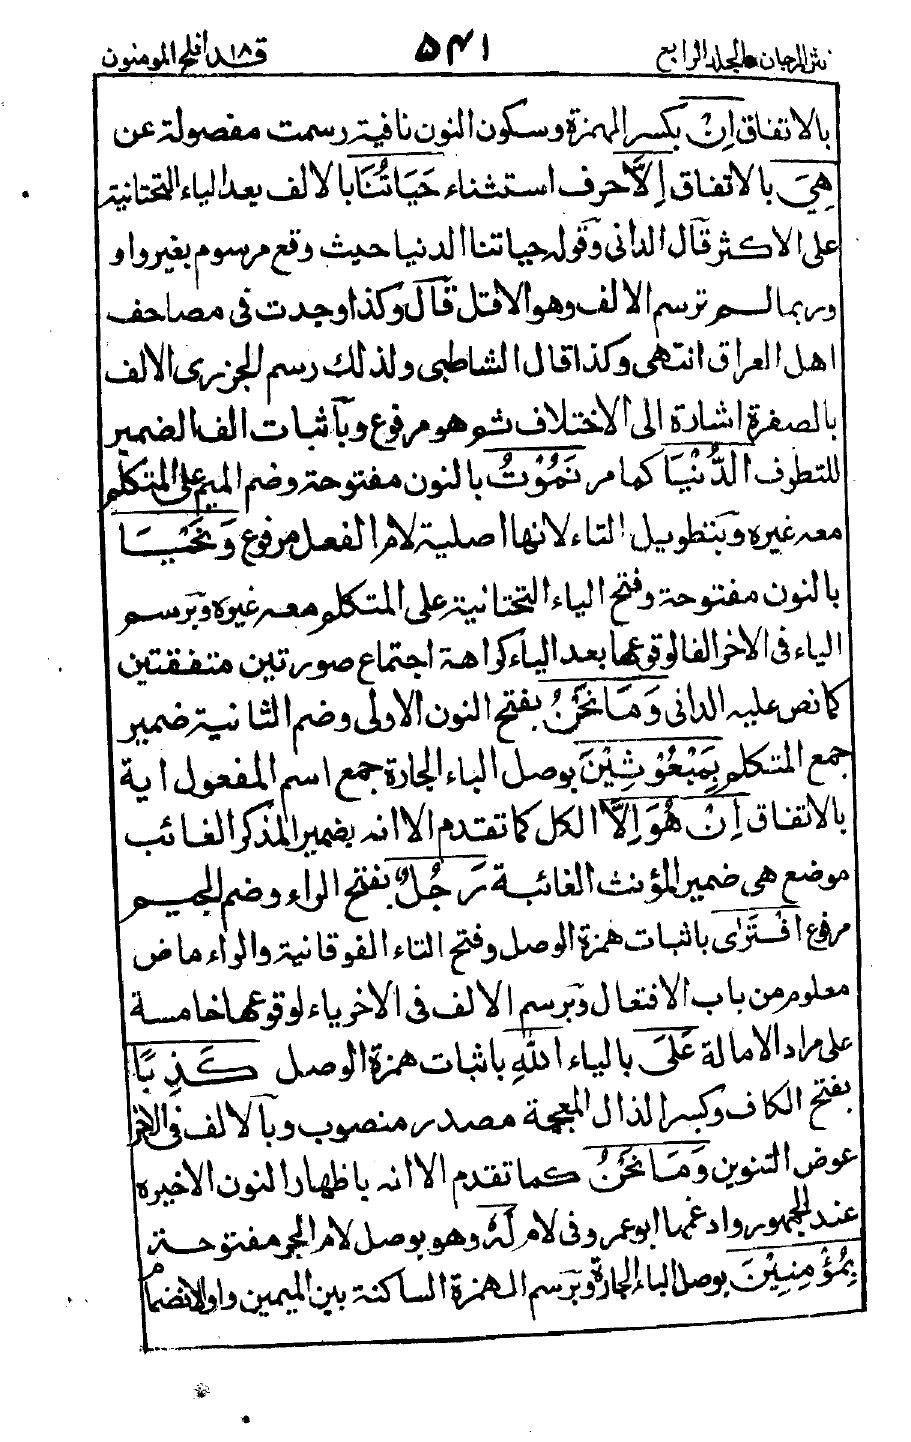 نثر المرجان المجلد الرابع ٥٤١ قد افلح ١٨ المومنون
بالاتفاق اِنْ بكسر الهمزة وسكون النون نافية رسمت مفصولة عن
هِيَ بالاتفاق اِلَّا حرف استثناء حَيَاتُنَا بالالف بعد الياء التحتانية
على الاكثر قال الدانى وقوله حياتنا الدنيا حيث وقع مرسوم بغير واو
وربما لم ترسم الالف وهو الاقل قال وكذا وجدت فى مصاحف
اهل العراق انتهى وكذا قال الشاطبى ولذلك رسم الجزرى الالف
بالصفرة اشارة الى الاختلاف ثم هو مرفوع وباثبات الف الضمير
للتطرف الدُّنْيَا كما مر نَمُوْتُ بالنون مفتوحة وضم الميم على المتكلم
معه غيره وبتطويل التاء لانها اصلية لام الفعل مرفوع وَنَحْيَا
بالنون مفتوحة وفتح الياء التحتانية على المتكلم معه غيره وبرسم
الياء فى الاخر الفا لوقوعها بعد الياء كراهة اجتماع صورتين متفقتين
كما نص عليه الدانى وَمَا نَحْنُ بفتح النون الاولى وضم الثانية ضمير
جمع المتكلم بِمَبْعُوْثِيْنَ بوصل الباء الجارة جمع اسم المفعول اية
بالاتفاق اِنْ هُوَ اِلَّا الكل كما تقدم الا انه بضمير المذكر الغائب
موضع هى ضمير المؤنث الغائبة رَجُلٌ بفتح الراء وضم الجيم
مرفوع افْتَرٰى باثبات همزة الوصل وفتح التاء الفوقانية والراء ماض
معلوم من باب الافتعال وبرسم الالف فى الاخر ياء لوقوعها خامسة
على مراد الامالة عَلَى بالياء اللّٰهِ باثبات همزة الوصل كَذِبًا
بفتح الكاف وكسر الذال المعجمة مصدر منصوب وبالالف فى الاخر
عوض التنوين وَمَا نَحْنُ كما تقدم الا انه باظهار النون الاخيرة
عند الجمهور وادغمها ابو عمرو فى لام لَهٗ وهو بوصل لام الجر مفتوحة
بِمُؤْمِنِيْنَ بوصل الباء الجارة وبرسم الهمزة الساكنة بين الميمين واوا لانضمام